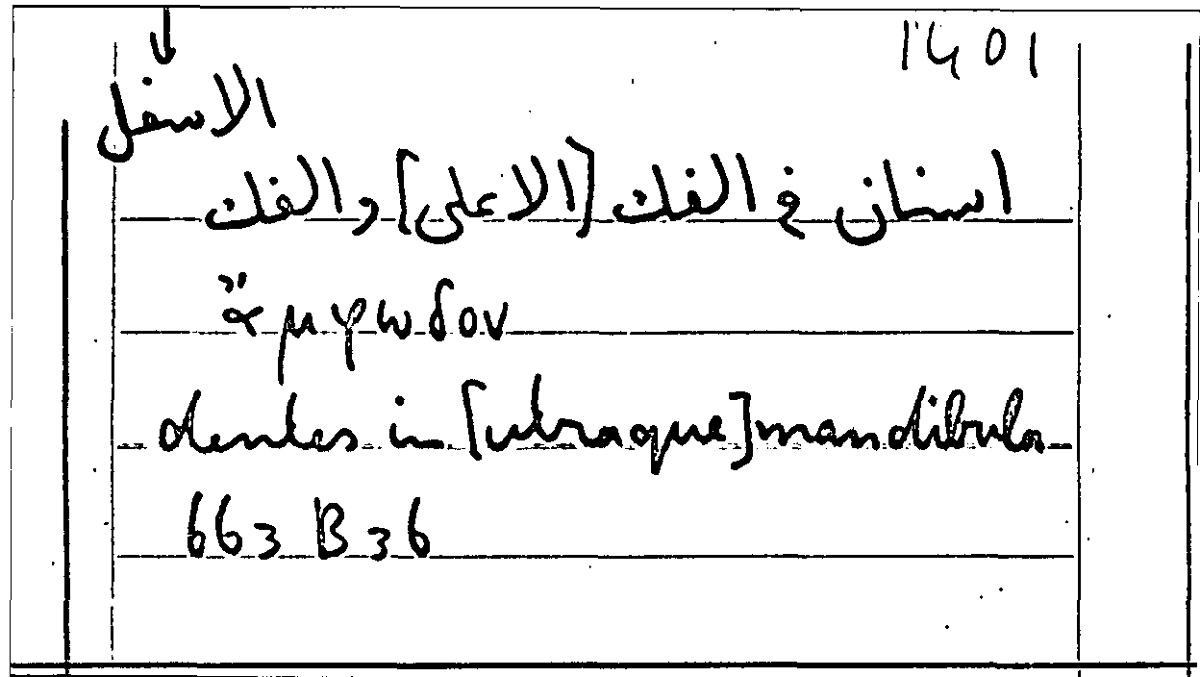 1401
↓
الاسفل
اسنان في الفك [الاعلى] والفك
ἄμφωδον
dentes in [utraque] mandibula
663 B 36